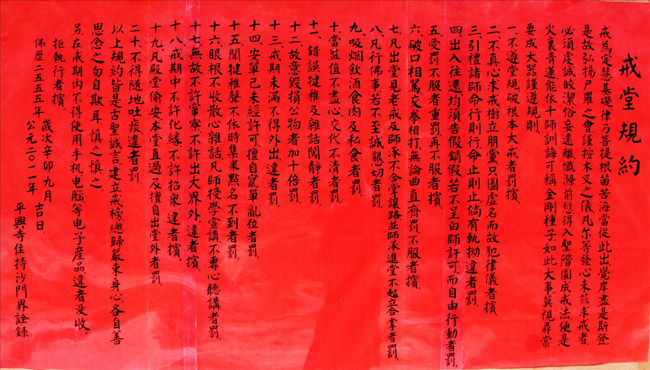 戒堂規約
戒為定慧基礎律乃菩提根苗苦海當從此出覺岸盡是斯登
是故弘揚尸羅之會謹按木叉之儀凡尔等發心來茲求戒者
必須虔誠皎潔俗妄遠纖懺滌前愆得入聖階圓成戒法便是
火裏青蓮能依十師訓誨可稱金剛種子如此大事莫視尋常
要成大器謹遵規則
一不遵堂規破根本大戒者罰擯
二不真心求戒樹立朋黨只圖虛名而故犯律儀者擯
三引禮諸師命行則行命止則止倘有執拗違者罰
四出入往還均須告假銷假若不呈白師許可而自由行動者罰
五受罰不服者重罰再不服者擯
六破口相罵交拳相打無論曲直齊罰不服者擯
七凡出堂見老戒及師承不合掌讓路並師承進堂不起立合掌者罰
八凡行佛事若不至誠懇切者罰
九吸烟飲酒食肉及私食者罰
十當監值不盡心交代不清者罰
十一錯誤犍稚及雜話閙靜者罰
十二故意毀損公物者加十倍罰
十三戒期未滿不得外出違者罰
十四安單已未經許可擅自亂單亂位者罰
十五聞犍稚聲不依時集衆點名不到者罰
十六眼根不收散心雜話凡師授學宣講不專心聽講者罰
十七無故不許單寮不許出大界外違者擯
十八戒期中不許化緣不許招衆違者擯
十九凡殿堂偷安本堂直過及擅自出堂外者罰
二十不得隨地吐痰違者罰
以上規約皆是古聖誠言建立戒棧總歸嚴束身心各自善
思念之勿自欺耳慎之慎之
另在戒期內不得使用手机电腦等电子産品違者没收
拒執行者擯
歲次辛卯九月 吉日
佛歷二五五五年 公元二〇一一年
平興寺住持沙門界詮錄